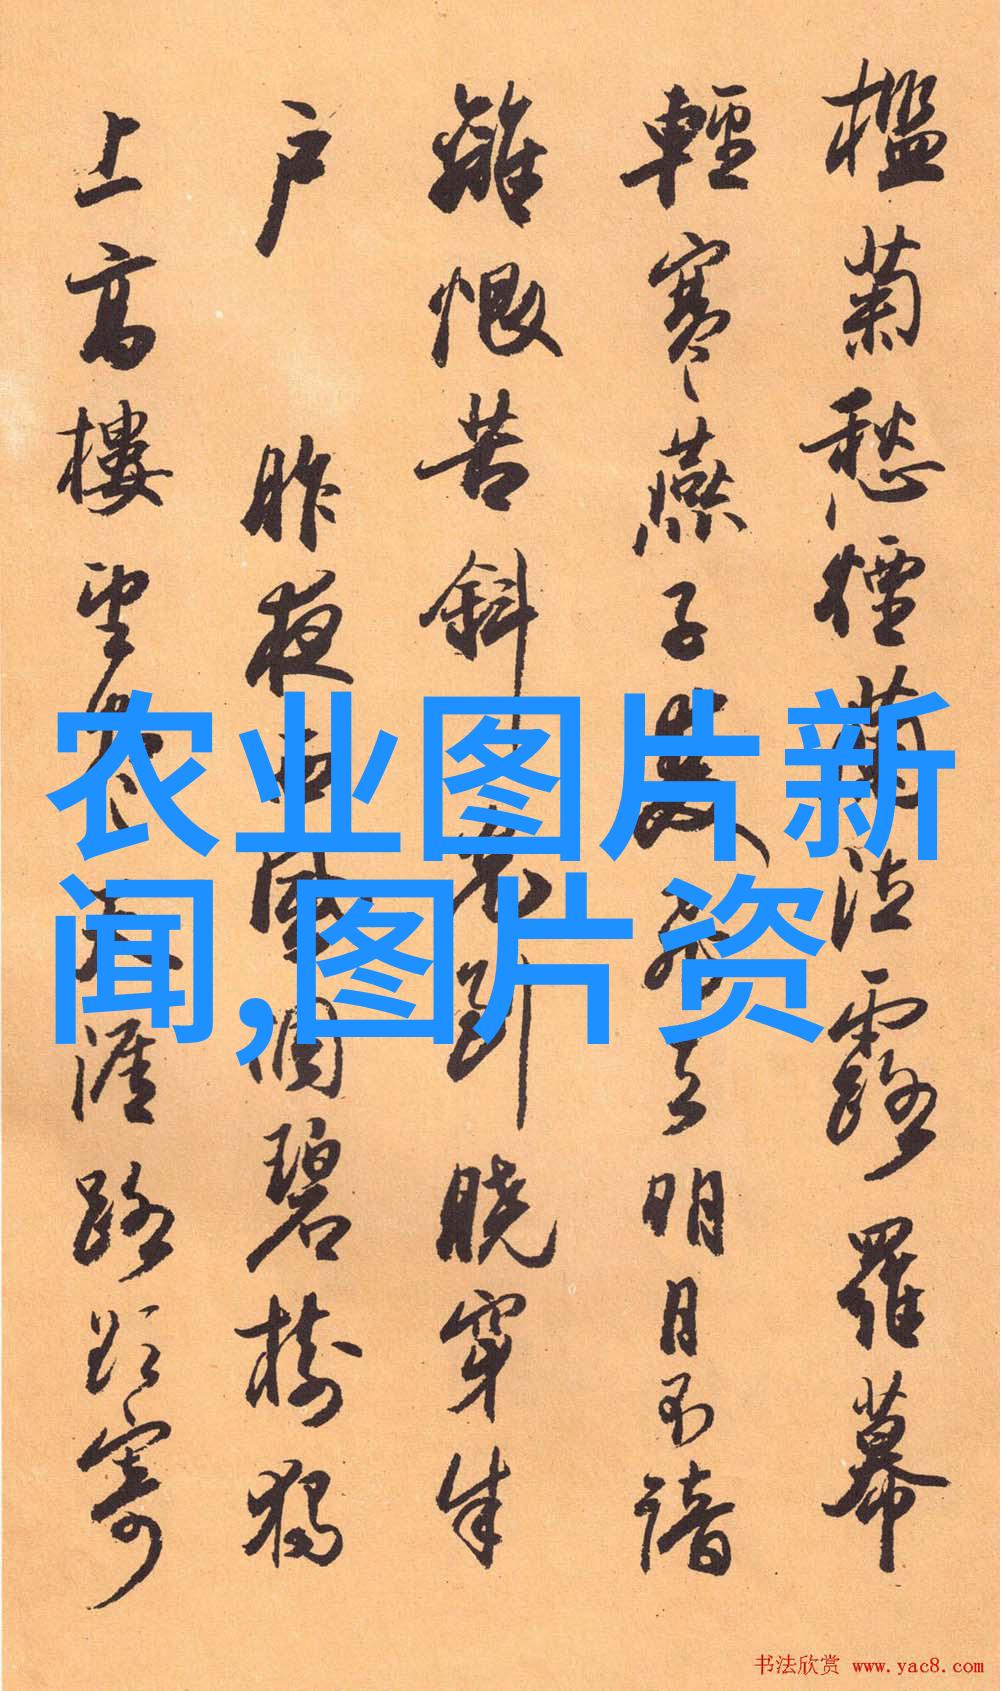 檻菊愁煙蘭泣露羅幕
輕寒燕子雙飛去明月不諳
離恨苦斜光到曉穿朱
户 昨夜西風凋碧樹獨
上高樓望盡天涯路欲寄
农业图片新
闻,图片资
书法欣赏 www.yac8.com